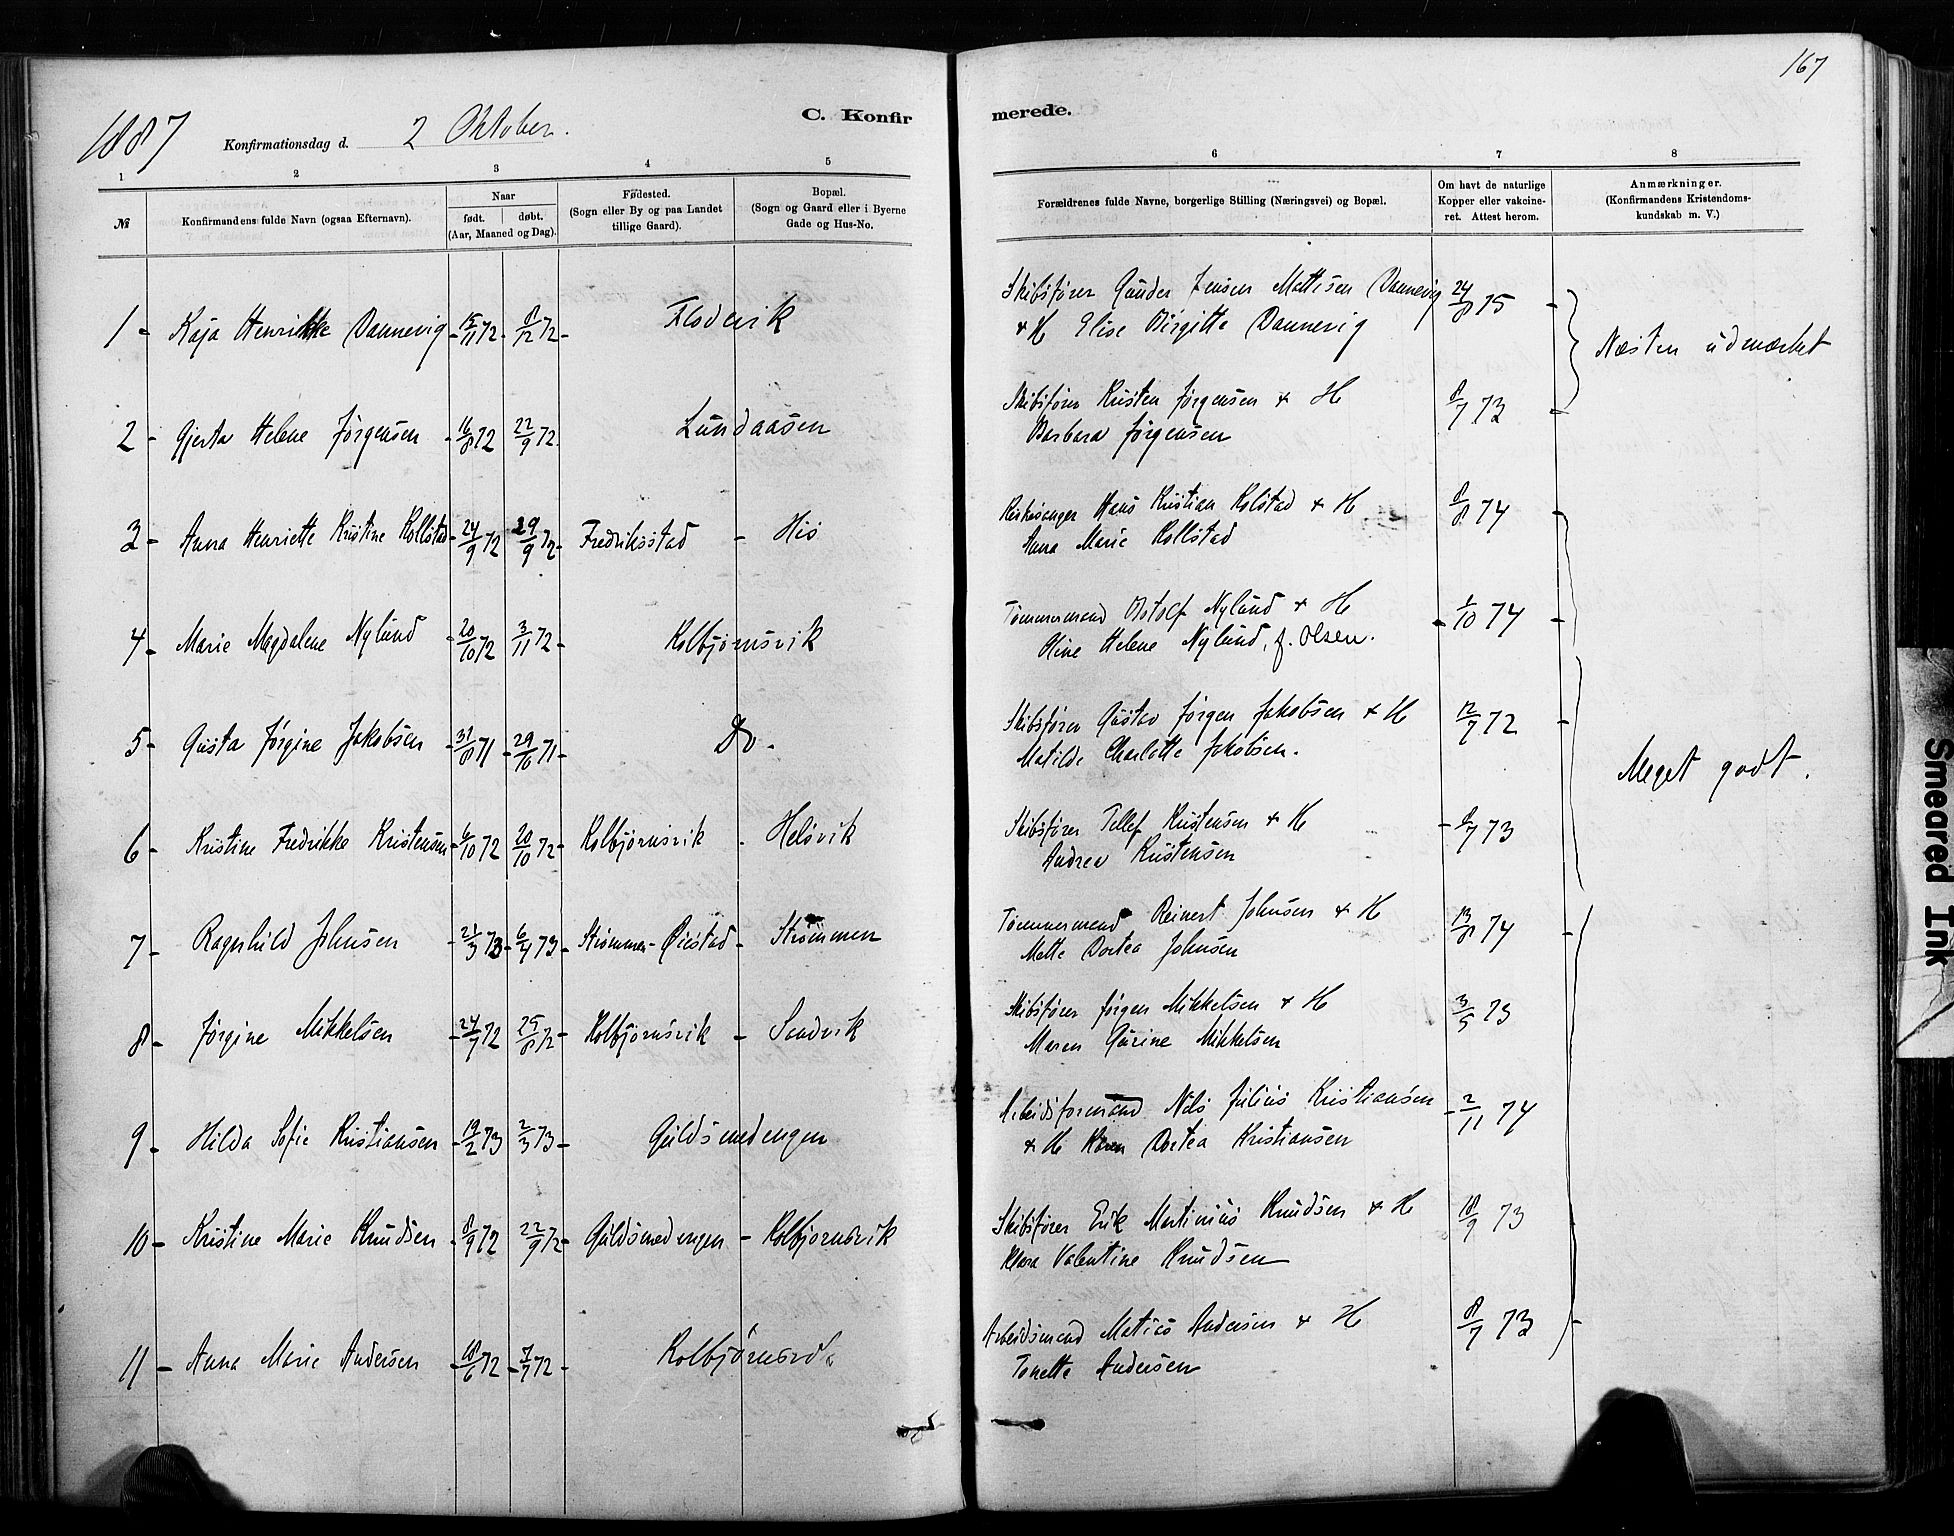 167
1887
Konfirmationsdag d. 2 Oktober.
C. Konfir
merede.
1 2 3 4 5 6 7 8
№
Konfirmandens fulde Navn (ogsaa Efternavn).
Naar
født. døbt.
(Aar, Maaned og Dag).
Fødested.
(Sogn eller By og paa Landet
tillige Gaard).
Bopæl.
(Sogn og Gaard eller i Byerne
Gade og Hus-No.
Forældrenes fulde Navne, borgerlige Stilling (Næringsvei) og Bopæl.
Om havt de naturlige
Kopper eller vakcine-
ret. Attest herom.
Anmærkninger.
(Konfirmandens Kristendoms-
kundskab m. V.)
1 - Kaja Henrikke Dannevig - 15/11 72 - 8/12 72 - Flodevik
Skibsfører Gunder Jensen Mathisen Dannevig 24/8 75 -
& H Elise Birgitte Dannevig
Næsten udmærket
2 - Gjerta Helene Jørgensen - 16/8 72 22/9 72 Lundaasen
Skibsfører Kristen Jørgensen & H 8/7 73 -
Barbara Jørgensen
3 - Anna Henriette Kristine Kollstad - 24/9 72 29/9 72 - Fredriksstad - His
Kirkesanger Hans Kristian Kolstad & H 8/8 74 -
Anna Marie Kollstad
4 - Marie Magdalene Nylund - 20/10 72 3/11 72 - Kolbjørnsvik
Tømmermand Nylund & H - 1/10 74 -
Oline Helene Nylund, f. Olsen.
5 - Gusta Jørgine Jakobsen - 31/8 71 - 29/10 71 - Do.
Skibsfører Gustav Jørgen Jakobsen & H 12/7 72 -
Matilde Charlotte Jakobsen.
Meget godt.
6 - Kristine Fredrikke Kristensen - 6/10 72 20/10 72 - Kolbjørnsvik - Helsvik
Skibsfører Tellef Kristensen & H - 8/7 73
Andrea Kristensen
7 - Ragnhild Johnsen - 21/3 73 - 6/4 73 - Strømmen - Øiestad - Strømmen
Tømmermand Reinert Johnsen & H 13/8 74 -
Mette Dortea Johnsen
8 - Jørgine Mikkelsen - 24/7 72 25/8 72 - Kolbjørnsvik - Sandvik
Skibsfører Jørgen Mikkelsen & H 3/5 73
Maren Gurine Mikkelsen
9 - Hilda Sofie Kristiansen - 19/2 73 2/3 73 - Guldsmedengen
Arbeidsformand Nils Julius Kristiansen - 2/11 74
& H Karen Dortea Kristiansen
10 - Kristine Marie Knudsen - 8/9 72 22/9 72 - Guldsmedengen - Kolbjørnsvik
Skibsfører Erik Martinius Knudsen & H 18/9 73
Klara Valentine Knudsen
11 - Anna Marie Andersen - 18/6 72 - 7/7 72 - Kolbjørnsvik
Arbeidsmand Matias Andersen & H 8/7 73 -
Tonette Andersen
Smeared Ink